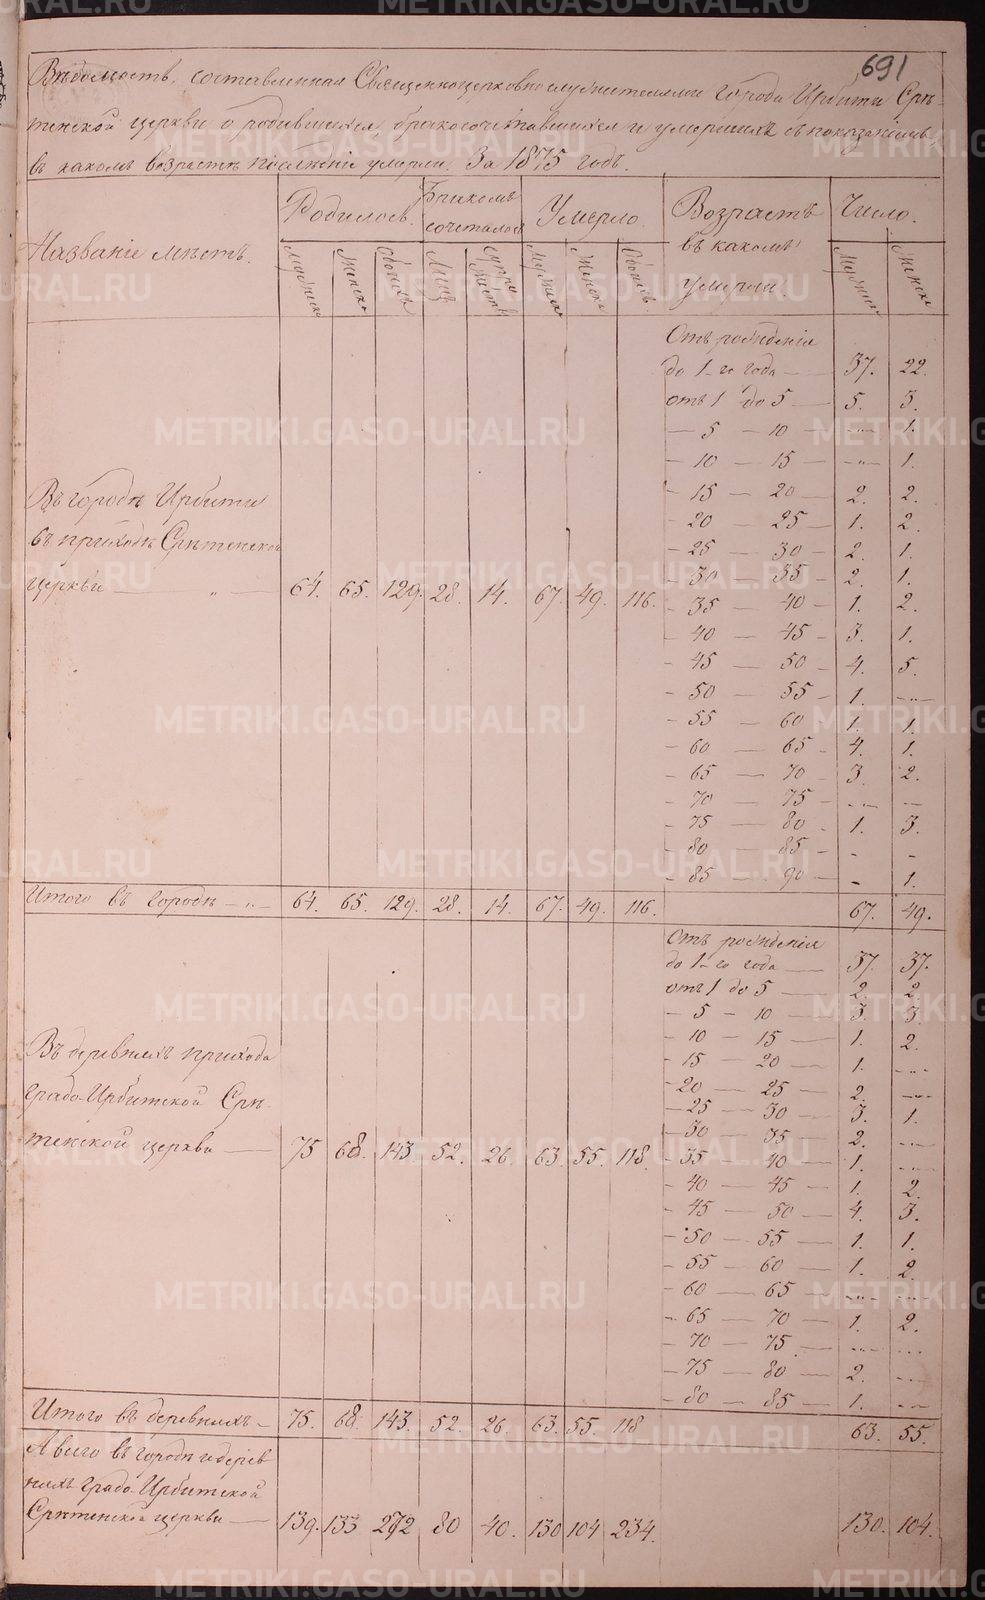 691
Вѣдомость, составленная Священноцерковнослужителями города Ирбити Срѣ-
тенской церкви о родившихся, бракосочетавшихся и умершихъ съ показаніемъ,
въ какомъ возрастѣ послѣдніе умерли. За 1875 годъ.
Названіе мѣстъ. Родилось. Бракомъ сочеталось Умерло. Возрастъ въ какомъ умерли. Число.
Мужска Женска Обоихъ Лицъ Супружествъ Мужска Женска Обоихъ Мужска Женска
Отъ рожденія
до 1-го года — 37. 22.
отъ 1 до 5 — 5. 3.
— 5 — 10 — „ 1.
— 10 — 15 — „ 1.
— 15 — 20 — 2. 2.
— 20 — 25 — 1. 2.
— 25 — 30 — 2. 1.
— 30 — 35 — 2. 1.
— 35 — 40 — 1. 2.
— 40 — 45 — 3. 1.
— 45 — 50 — 4. 5.
— 50 — 55 — 1. —„—
— 55 — 60 — 1. 1.
— 60 — 65 — 4. 1.
— 65 — 70 — 3. 2.
— 70 — 75 — — —
— 75 — 80 — 1. 3.
— 80 — 85 — - -
— 85 — 90 — - 1.
Въ городѣ Ирбити
въ приходѣ Срѣтенской
церкви — „ — 64. 65. 129. 28. 14. 67. 49. 116.
Итого въ городѣ — „ — 64. 65. 129. 28. 14. 67. 49. 116. 67. 49.
Отъ рожденія
до 1-го года — 37. 37.
отъ 1 до 5 — 2. 2.
— 5 — 10 — 3. 3.
— 10 — 15 — 1. 2.
— 15 — 20 — 1. —„—
— 20 — 25 — 2. —„—
— 25 — 30 — 3. 1.
— 30 — 35 — 2. —„—
— 35 — 40 — 1. —„—
— 40 — 45 — 1. 2.
— 45 — 50 — 4. 3.
— 50 — 55 — 1. 1.
— 55 — 60 — 1. 2.
— 60 — 65 — —„— —„—
— 65 — 70 — 1. 2.
— 70 — 75 — —„— —„—
— 75 — 80 — 2. —„—
— 80 — 85 — 1. —„—
Въ деревняхъ прихода
Градо-Ирбитской Срѣ-
тенской церкви — 75 68. 143. 52. 26. 63. 55. 118.
Итого въ деревняхъ — 75. 68. 143. 52. 26. 63. 55. 118 63. 55.
А всего въ городѣ и дерев
няхъ Градо-Ирбитской
Срѣтенской церкви — 139. 133 272 80 40. 130 104 234. 130. 104.
METRIKI.GASO-URAL.RU